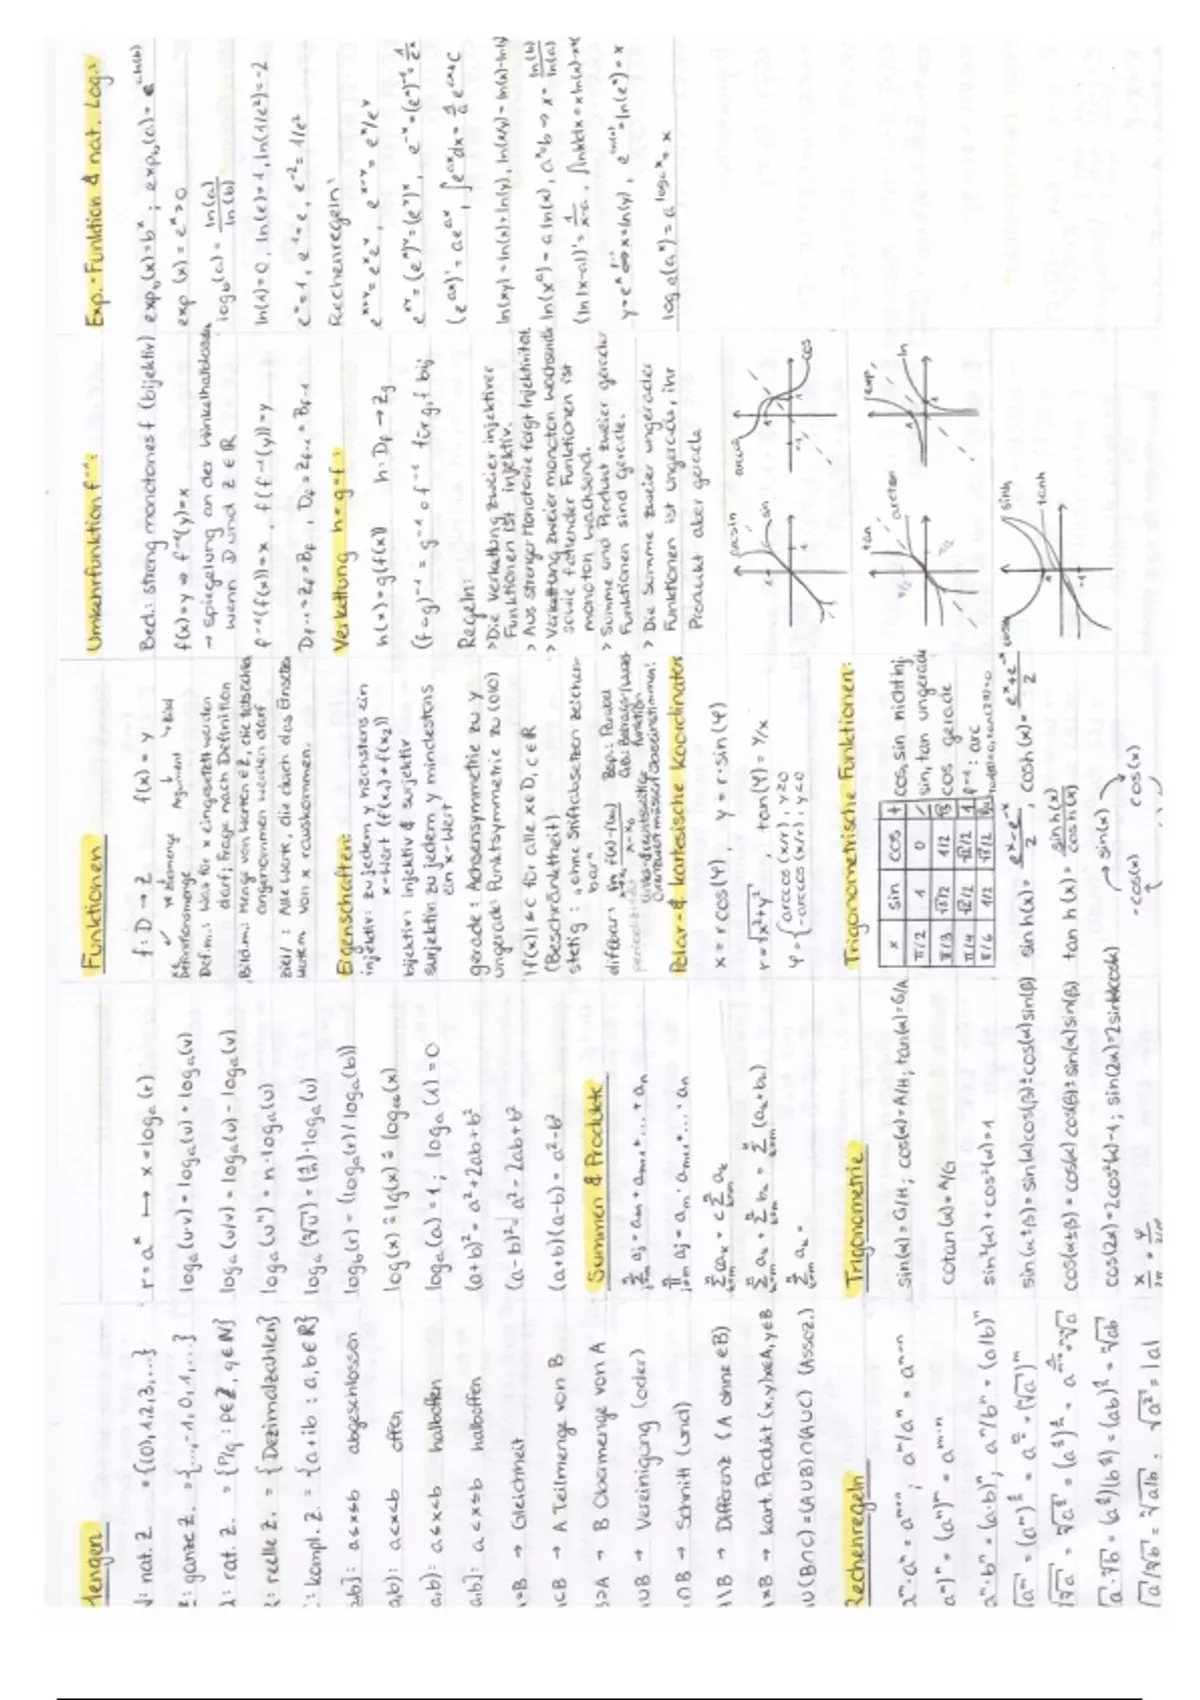 Mengen
nat. Z. = {(0),1,2,3,...}
ganze Z. = {...,-1,0,1,...}
rat. Z. = {p/q : p∈Z, q∈N}
reelle Z. = {Dezimalzahlen}
kompl. Z = {a+ib : a,b∈R}
a,b]: a≤x≤b abgeschlossen
a,b): a<x<b offen
a,b): a≤x<b halboffen
a,b]: a<x≤b halboffen
=B → Gleichheit
⊂B → A Teilmenge von B
B⊃A → B Obermenge von A
∪B → Vereinigung (oder)
∩B → Schnitt (und)
\B → Differenz (A ohne B)
×B → kart. Produkt (x,y) x∈A, y∈B
∪(B∩C) = (A∪B)∩(A∪C) (Assoz.)
Rechenregeln
aᵐ·aⁿ = aᵐ⁺ⁿ ; aᵐ/aⁿ = aᵐ⁻ⁿ
(aᵐ)ⁿ = (aⁿ)ᵐ = aᵐ·ⁿ
aⁿ·bⁿ = (a·b)ⁿ ; aⁿ/bⁿ = (a/b)ⁿ
√a² = |a|
r = aˣ ↦ x = logₐ(r)
logₐ(u·v) = logₐ(u) + logₐ(v)
logₐ(u/v) = logₐ(u) - logₐ(v)
logₐ(uⁿ) = n·logₐ(u)
logₐ(ⁿ√u) = (1/n)·logₐ(u)
log_b(r) = (logₐ(r)/logₐ(b))
log(x) ≙ lg(x) ≙ log₁₀(x)
logₐ(a) = 1 ; logₐ(1) = 0
(a+b)² = a²+2ab+b²
(a-b)² = a²-2ab+b²
(a+b)(a-b) = a²-b²
Summen & Produkte
Trigonometrie
sin(α)=G/H; cos(α)=A/H; tan(α)=G/A
cotan(α)=A/G
sin²(α)+cos²(α)=1
sin(α±β)=sin(α)cos(β)±cos(α)sin(β)
cos(α±β)=cos(α)cos(β)∓sin(α)sin(β)
cos(2α)=2cos²(α)-1; sin(2α)=2sin(α)cos(α)
Funktionen
f: D → Z f(x) = y
Zielmenge Argument Bild
Definitionsmenge
Def.m.: Was für x eingesetzt werden
darf; Frage nach Definition
Bild.m.: Menge von Werten ∈Z, die tatsächlich
angenommen werden darf
Ziel/ : Alle Werte, die durch das Einsetzen
Werte.m von x rauskommen.
Eigenschaften:
injektiv: zu jedem y höchstens ein
x-Wert (f(x₁)≠f(x₂))
bijektiv: injektiv & surjektiv
surjektiv: zu jedem y mindestens
ein x-Wert
gerade: Achsensymmetrie zu y
ungerade: Punktsymmetrie zu (0|0)
|f(x)| ≤ c für alle x∈D, c∈R
(Beschränktheit)
stetig: "ohne Stiftabsetzen zeichen-
bar"
Polar- & kartesische Koordinaten
x = r cos(φ) , y = r·sin(φ)
r = √x²+y² , tan(φ) = y/x
φ = { arccos (x/r) ; y≥0
-arccos (x/r) ; y<0
Trigonometrische Funktionen:
x sin cos
π/2 1 0
π/3 √3/2 1/2
π/4 √2/2 √2/2
π/6 1/2 √3/2
cos, sin nicht inj.
sin, tan ungerade
cos gerade
f⁻¹: arc
sinh(x) = (eˣ-e⁻ˣ)/2 , cosh(x) = (eˣ+e⁻ˣ)/2
tanh(x) = sinh(x)/cosh(x)
sin(x)
-cos(x) cos(x)
Umkehrfunktion f⁻¹:
Bed.: streng monotones f (bijektiv)
f(x)=y ⇔ f⁻¹(y)=x
→ Spiegelung an der Winkelhalbierenden
wenn D und Z ∈ R
f⁻¹(f(x))=x , f(f⁻¹(y))=y
Verkettung h = g∘f:
h(x) = g(f(x)) h: D_f → Z_g
(f∘g)⁻¹ = g⁻¹∘f⁻¹ für g, f bij
Regeln:
> Die Verkettung zweier injektiver
Funktionen ist injektiv.
> Aus strenger Monotonie folgt Injektivität
> Verkettung zweier monoton wachsender
sowie fallender Funktionen ist
monoton wachsend.
> Summe und Produkt zweier gerader
Funktionen sind gerade.
> Die Summe zweier ungerader
Funktionen ist ungerade, ihr
Produkt aber gerade
arcsin sin
arccos cos
tan arctan
exp ln
cosh sinh tanh
Exp.-Funktion & nat. Log.:
exp_b(x)=bˣ
exp(x) = eˣ > 0
log_b(a) = ln(a)/ln(b)
ln(1)=0, ln(e)=1, ln(1/e²)=-2
e⁰=1, e¹=e, e⁻²=1/e²
Rechenregeln:
eˣ⁺ʸ = eˣeʸ , eˣ⁻ʸ = eˣ/eʸ
eˣʸ = (eˣ)ʸ = (eʸ)ˣ , e⁻ˣ = (eˣ)⁻¹ = 1/eˣ
(eᵃˣ)' = aeᵃˣ , ∫eᵃˣdx = 1/a eᵃˣ+C
ln(xy) = ln(x)+ln(y), ln(x/y) = ln(x)-ln(y)
ln(xᵃ) = a ln(x), aˣ=b → x = ln(b)/ln(a)
(ln|x-a|)' = 1/(x-a)
y=eˣ ⇔ x=ln(y) , e^ln(x) = ln(eˣ) = x
logₐ(aˣ) = a^logₐx = x